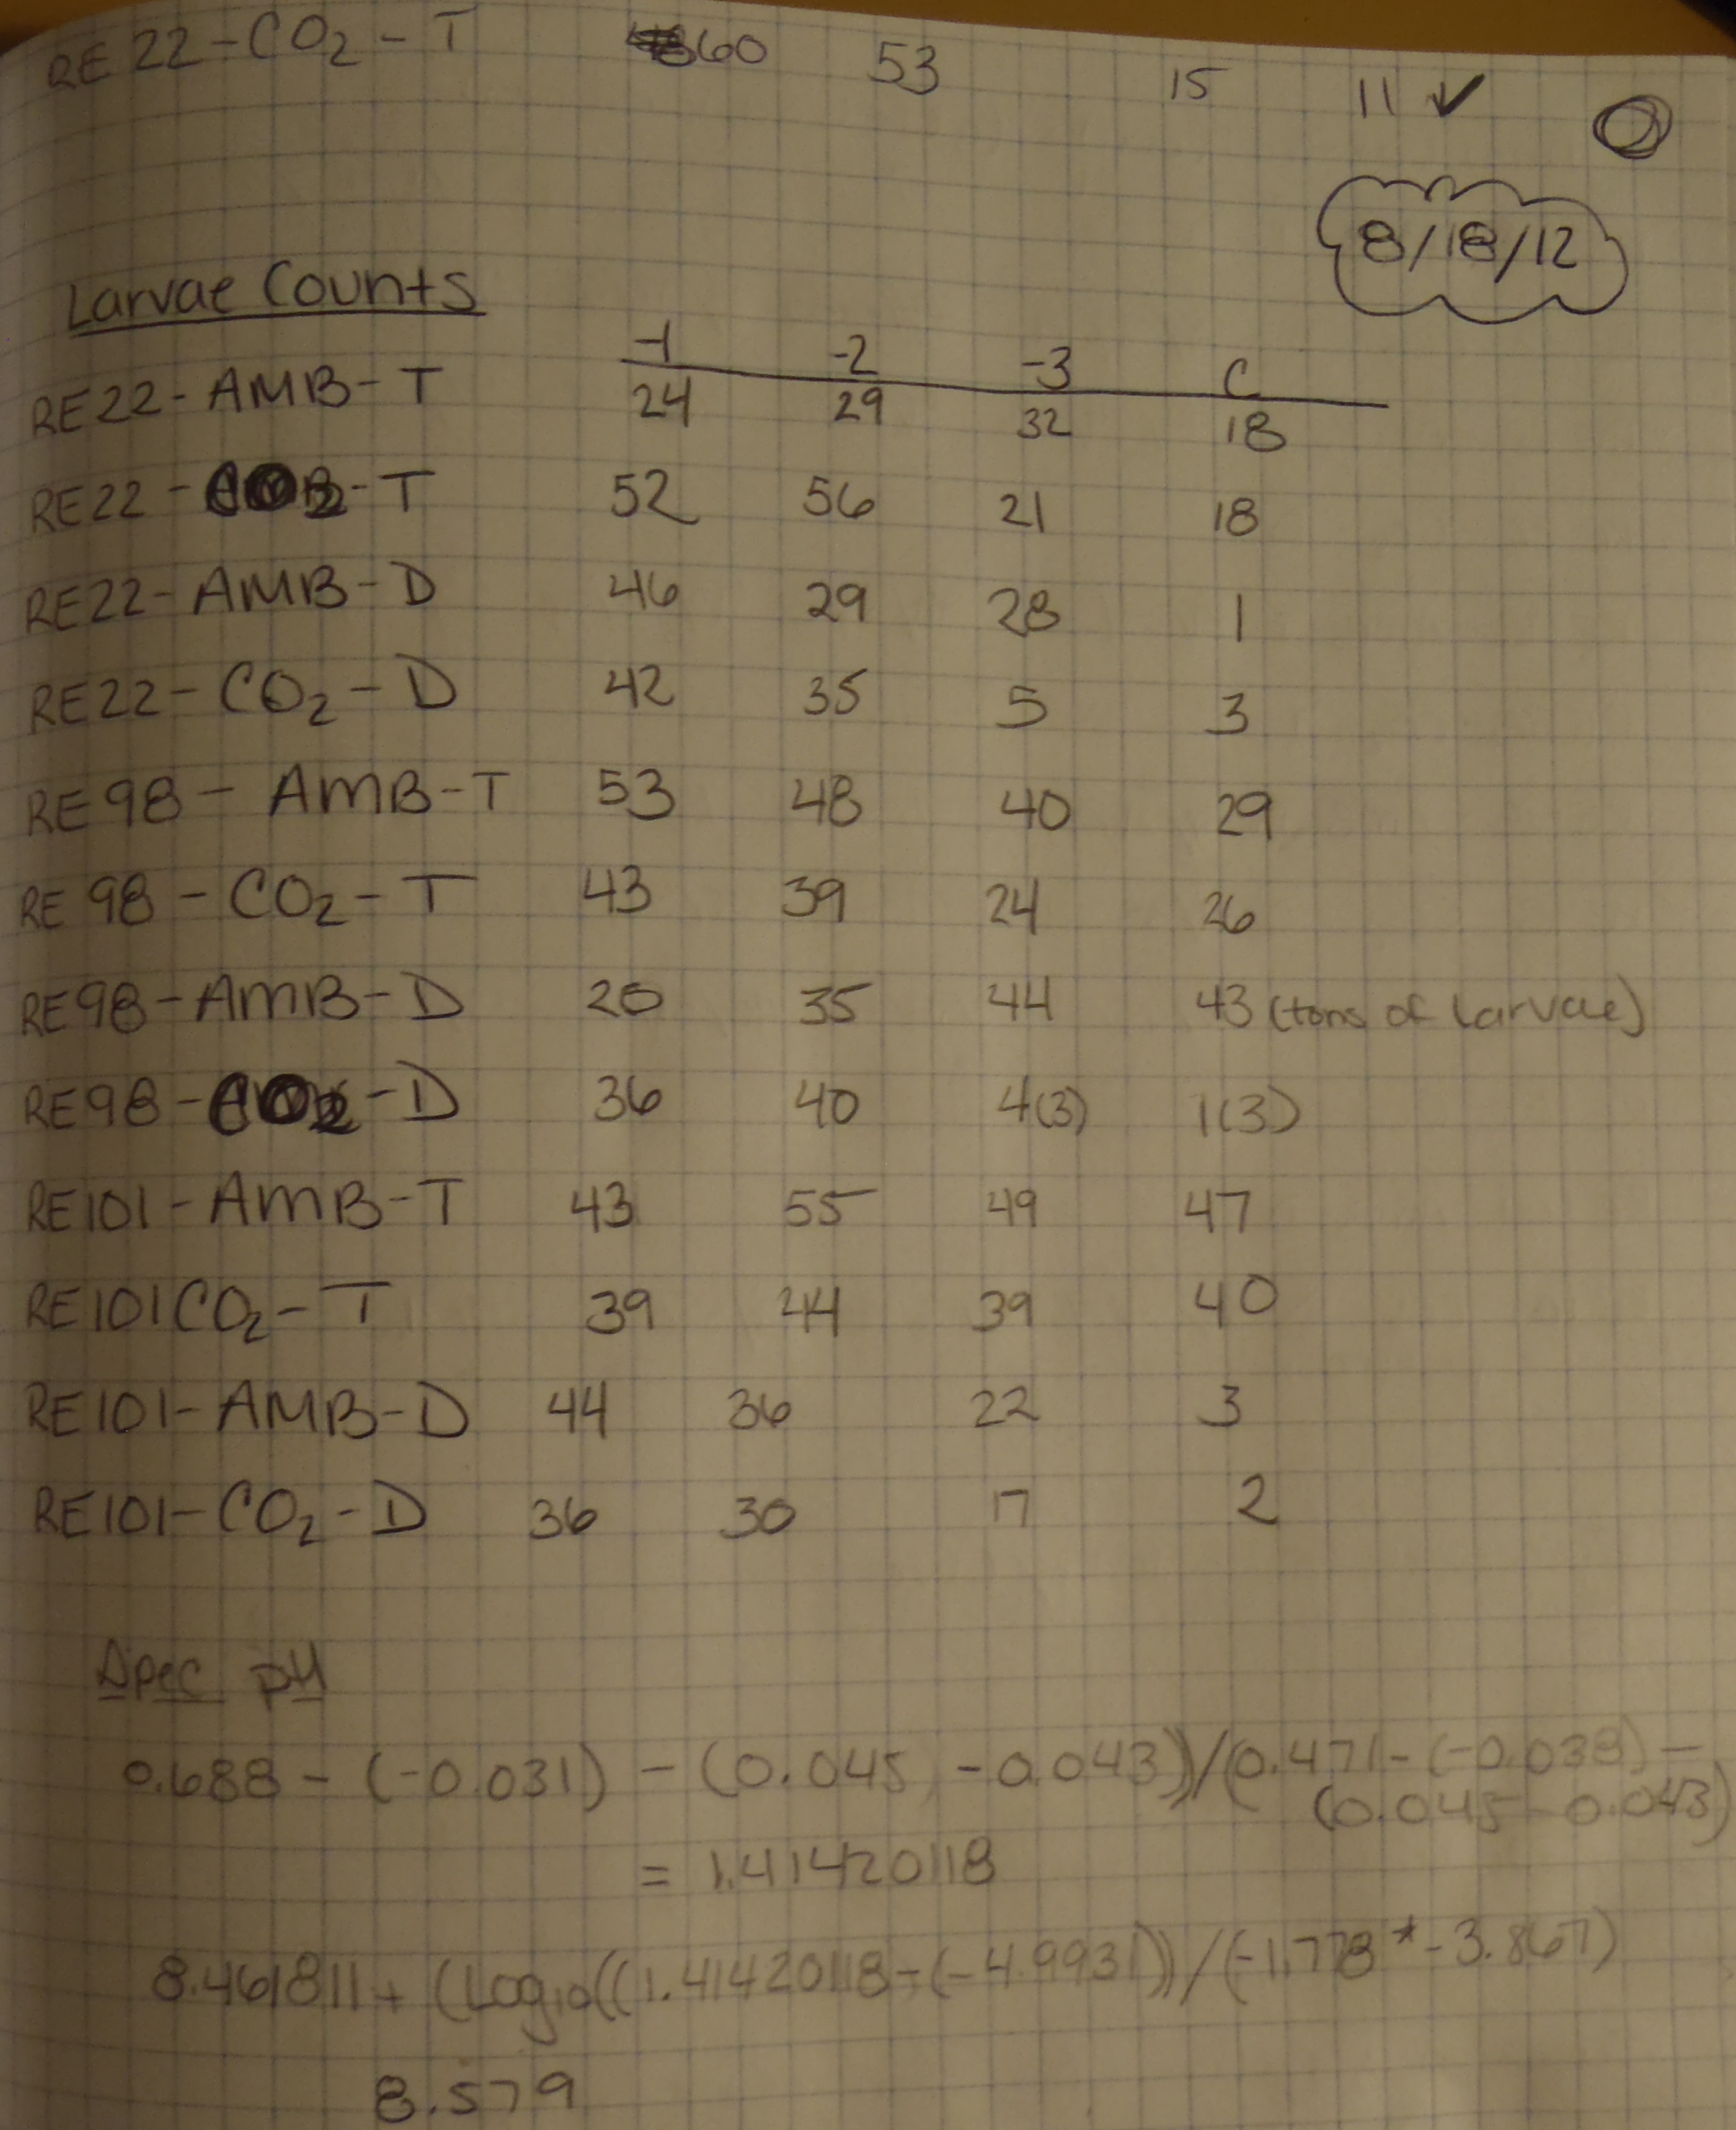 RE22-CO₂-T 60 53 15 11 ✓
8/18/12
Larvae Counts
-1 -2 -3 C
RE22-AMB-T 24 29 32 18
RE22-CO2-T 52 56 21 18
RE22-AMB-D 46 29 28 1
RE22-CO₂-D 42 35 5 3
RE98-AMB-T 53 48 40 29
RE98-CO₂-T 43 39 24 26
RE98-AMB-D 20 35 44 43 (tons of larvae)
RE98-CO2-D 36 40 4(3) 1(3)
RE101-AMB-T 43 55 49 47
RE101CO₂-T 39 44 39 40
RE101-AMB-D 44 36 22 3
RE101-CO₂-D 36 30 17 2
Spec pH
0.688-(-0.031)-(0.045-0.043))/(0.471-(-0.038)-
(0.045-0.043)
= 1.41420118
8.461811+(Log₁₀((1.41420118-(-4.9931))/(-1.778*-3.867)
8.579